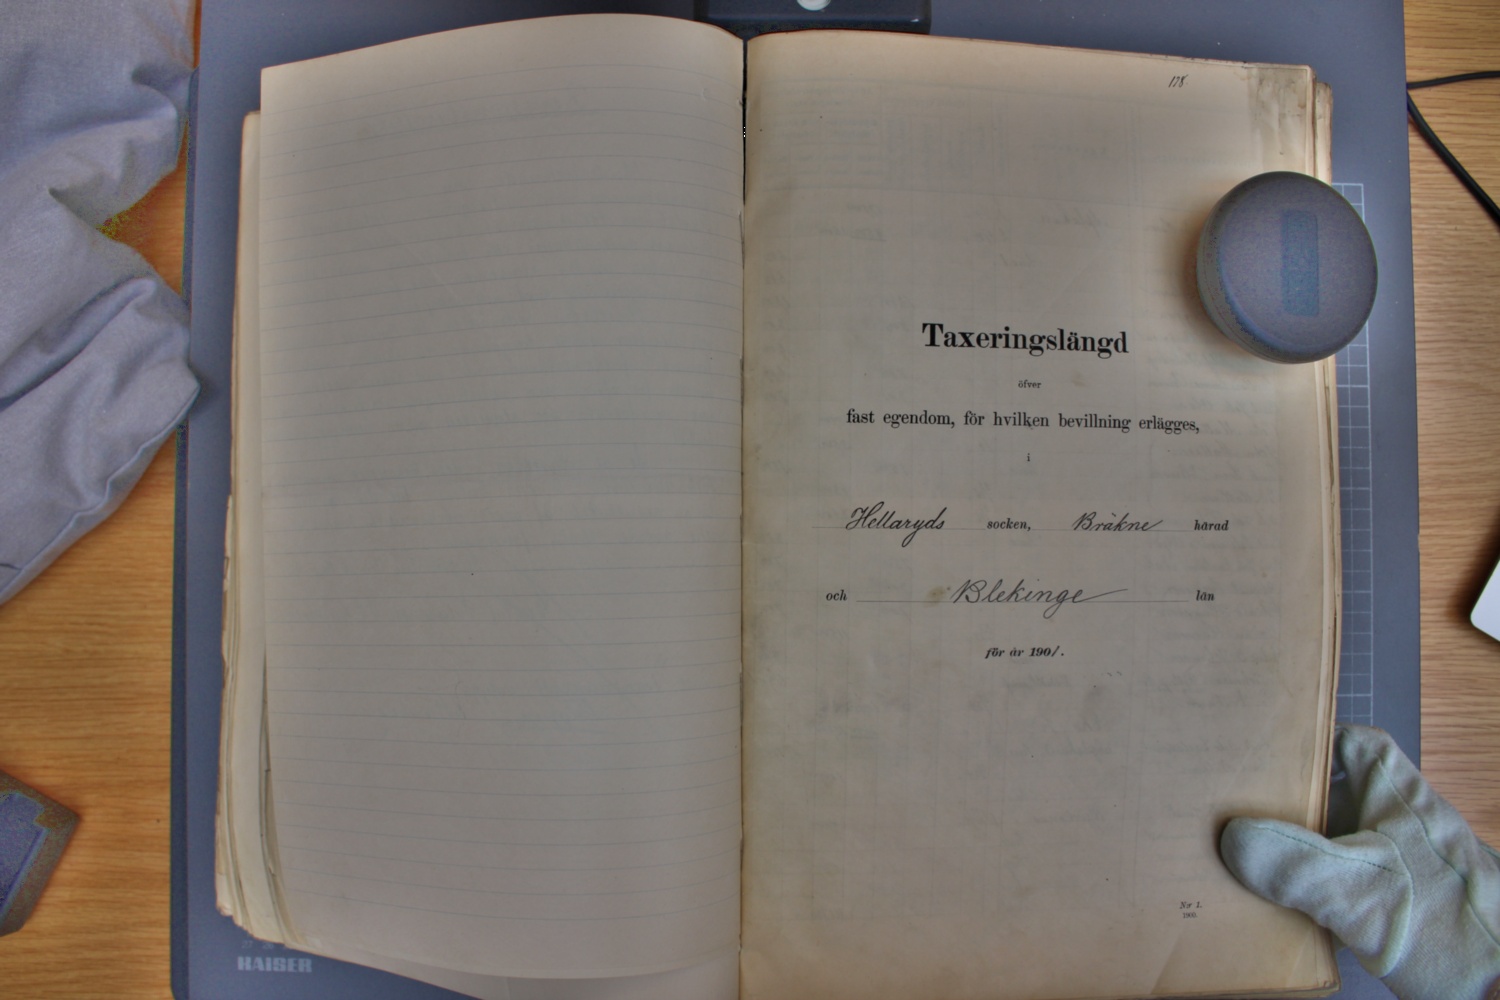 178.
Taxeringslängd
öfver
fast egendom, för hvilken bevillning erlägges,
i
Hellaryds socken, Bräkne härad
och Blekinge län
för år 1901.
N:r 1.
1900.
KAISER